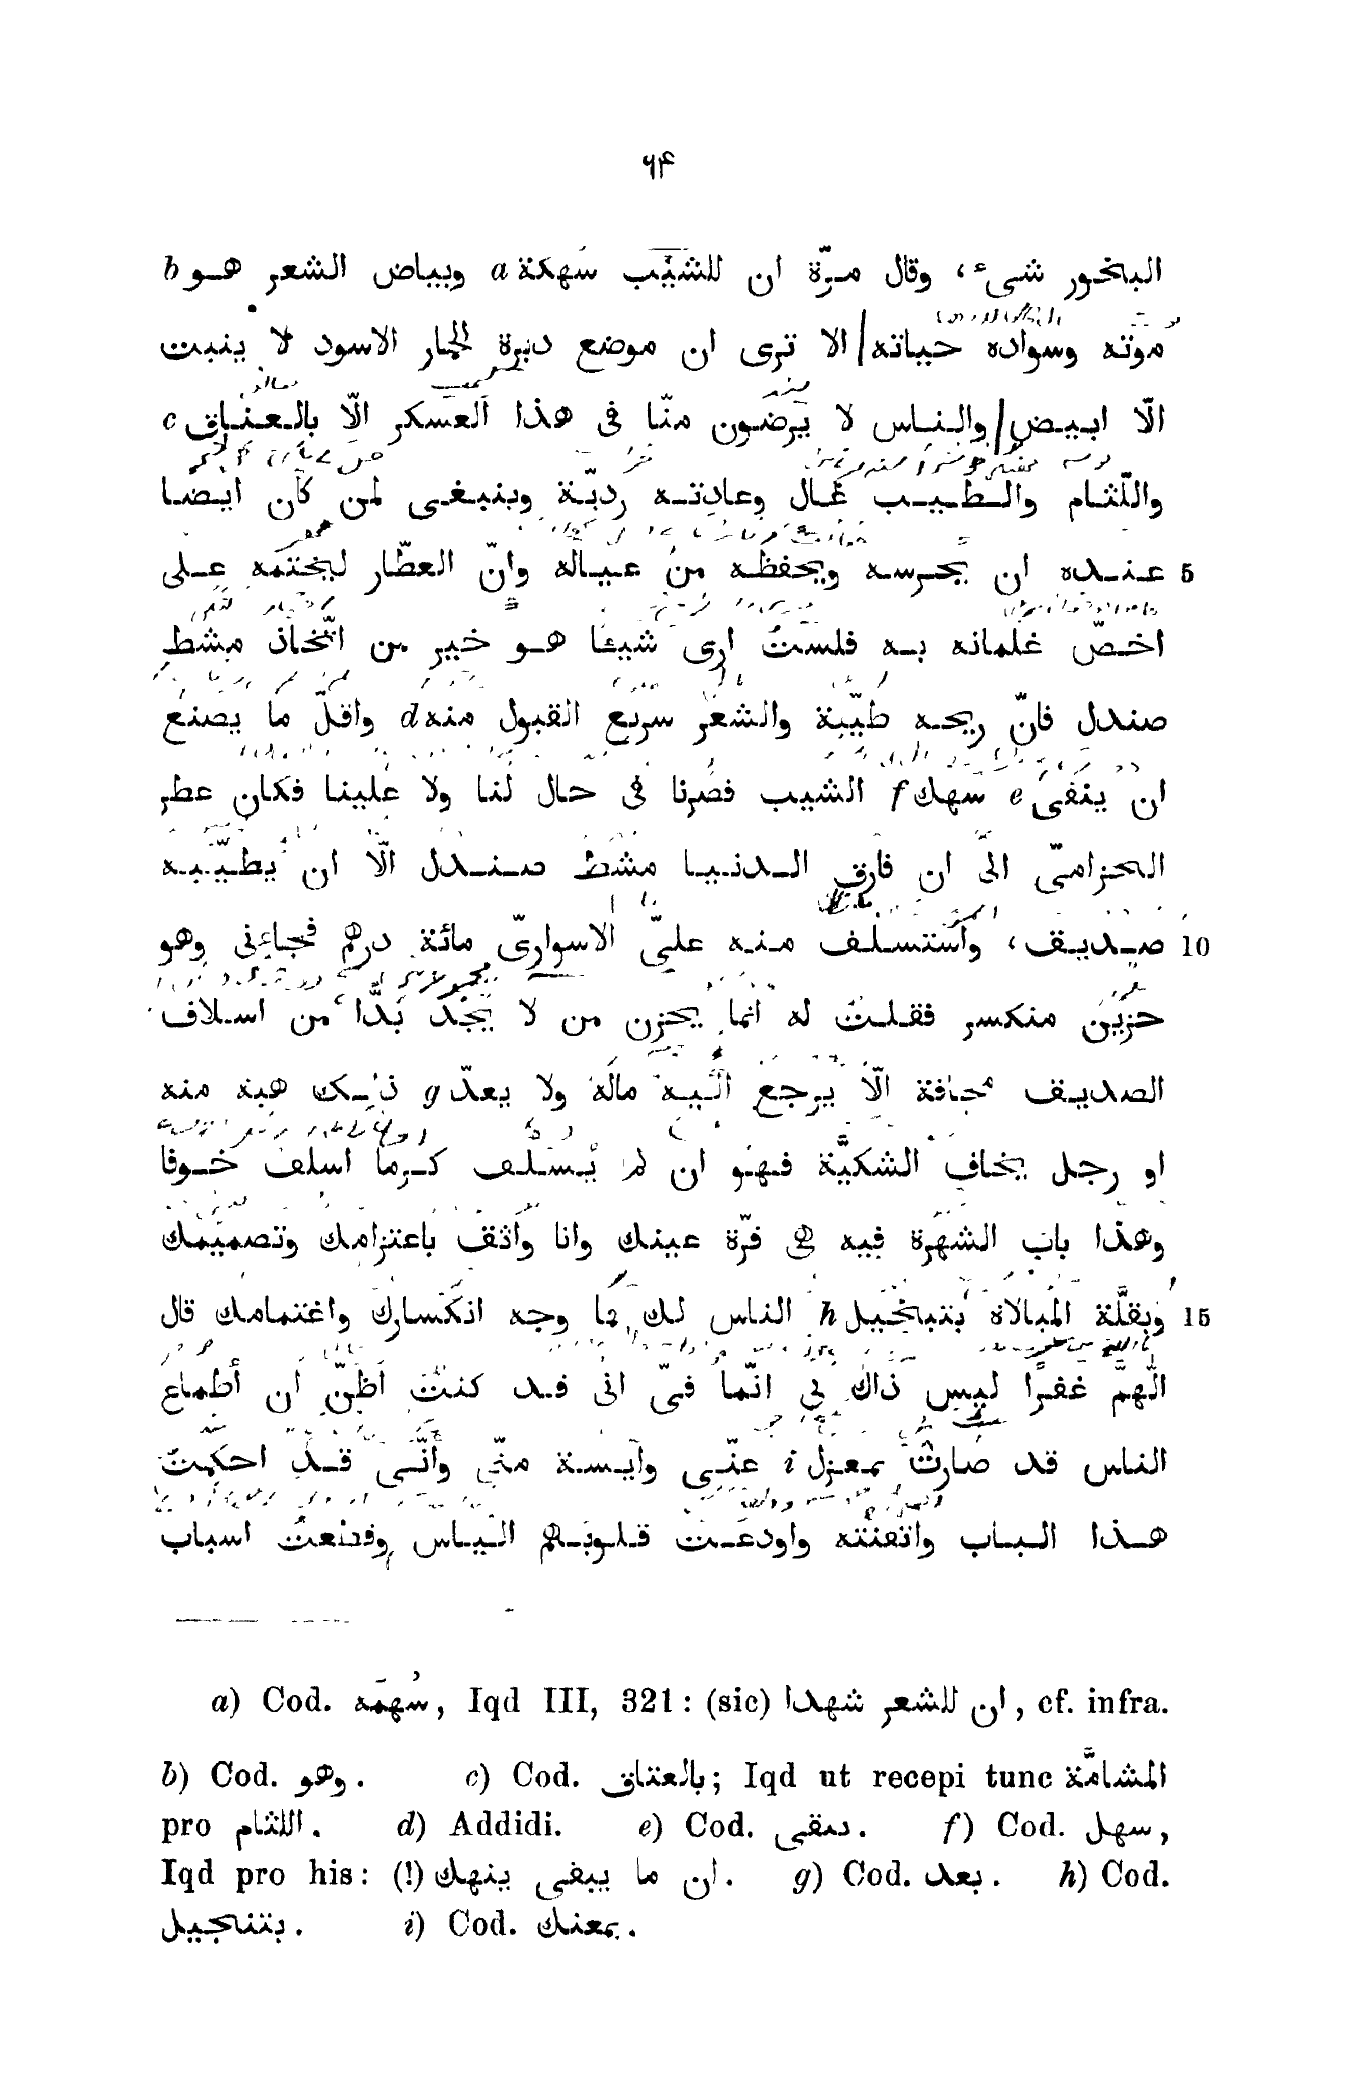 ٦٤
البخور شىء، وقال مرّة ان للشَّيْب سُهكة a وبياض الشعر هو b
موته وسواده حياته الا ترى ان موضع دبرة الحمار الاسود لا ينبت
الّا ابيض والناس لا يَرضون منّا فى هذا العسكر الّا بالعناق c
واللثام والطيب غال وعادته رديّة وينبغى لمن كان ايضا
5 عنده ان يحرسه ويحفظه من عياله وانّ العطّار ليختمه على
اخصّ غلمانه به فلستُ ارى شيئا هو خير من اتّخاذ مشط
صندل فانّ ريحه طيّبة والشعر سريع القبول منه d واقلّ ما يصنع
ان ينفى e سهك f الشيب فصرنا فى حال لنا ولا علينا فكان عطر
الحزامىّ الى ان فارق الدنيا مشط صندل الّا ان يطيّبه
10 صديق، واستسلف منه علىّ الاسوارىّ مائة درهم فجاءنى وهو
حزين منكسر فقلتُ له انما يحزن من لا يجد بُدّا من اسلاف
الصديق مخافة الّا يرجع اليه ماله ولا يعدّ g ذلك هبة منه
او رجل يخاف الشكيّة فهو ان لم يُسلف كرما اسلف خوفا
وهذا باب الشهرة فيه هى قرّة عينك وانا واثق باعتزامك وتصميمك
15 وبقلّة المبالاة بتبخيل h الناس لك فما وجه انكسارك واغتمامك قال
الّهمّ غفرًا ليس ذاك بى انّما فىّ انى قد كنتُ اظنّ ان أطماع
الناس قد صارت بمعزل i عنّى وآيسة منّى وأنّى قد احكمتُ
هذا الباب واتقنته واودعت قلوبهم اليأس وقطعتُ اسباب
a) Cod. سُهمَه, Iqd III, 321: (sic) ان للشعر شهدا, cf. infra.
b) Cod. وهو. c) Cod. بالعتاق; Iqd ut recepi tunc المشامَّة
pro اللثام. d) Addidi. e) Cod. ىىقى. f) Cod. سهل,
Iqd pro his: (!) ان ما يبغى ينهك. g) Cod. بعد. h) Cod.
بتنجيل. i) Cod. بمعنك.